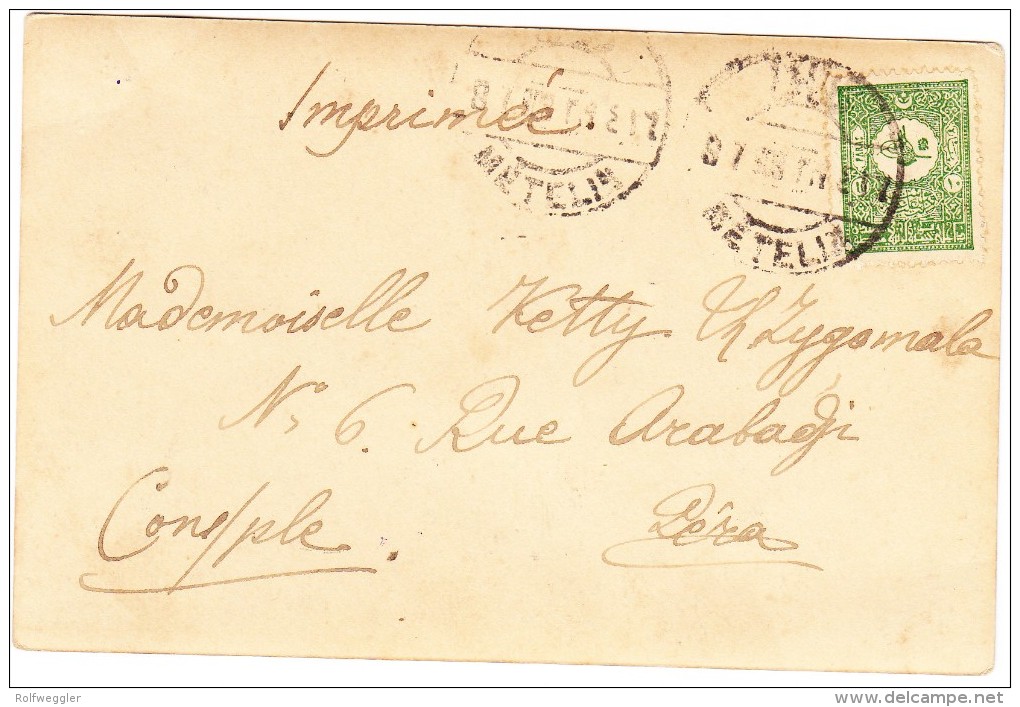 Imprimée.
METELIN
METELIN
Mademoiselle Ketty Zygomala
No 6. Rue Arabadji
Cons/ple.
Péra
Rolfweggler
www.delcampe.net